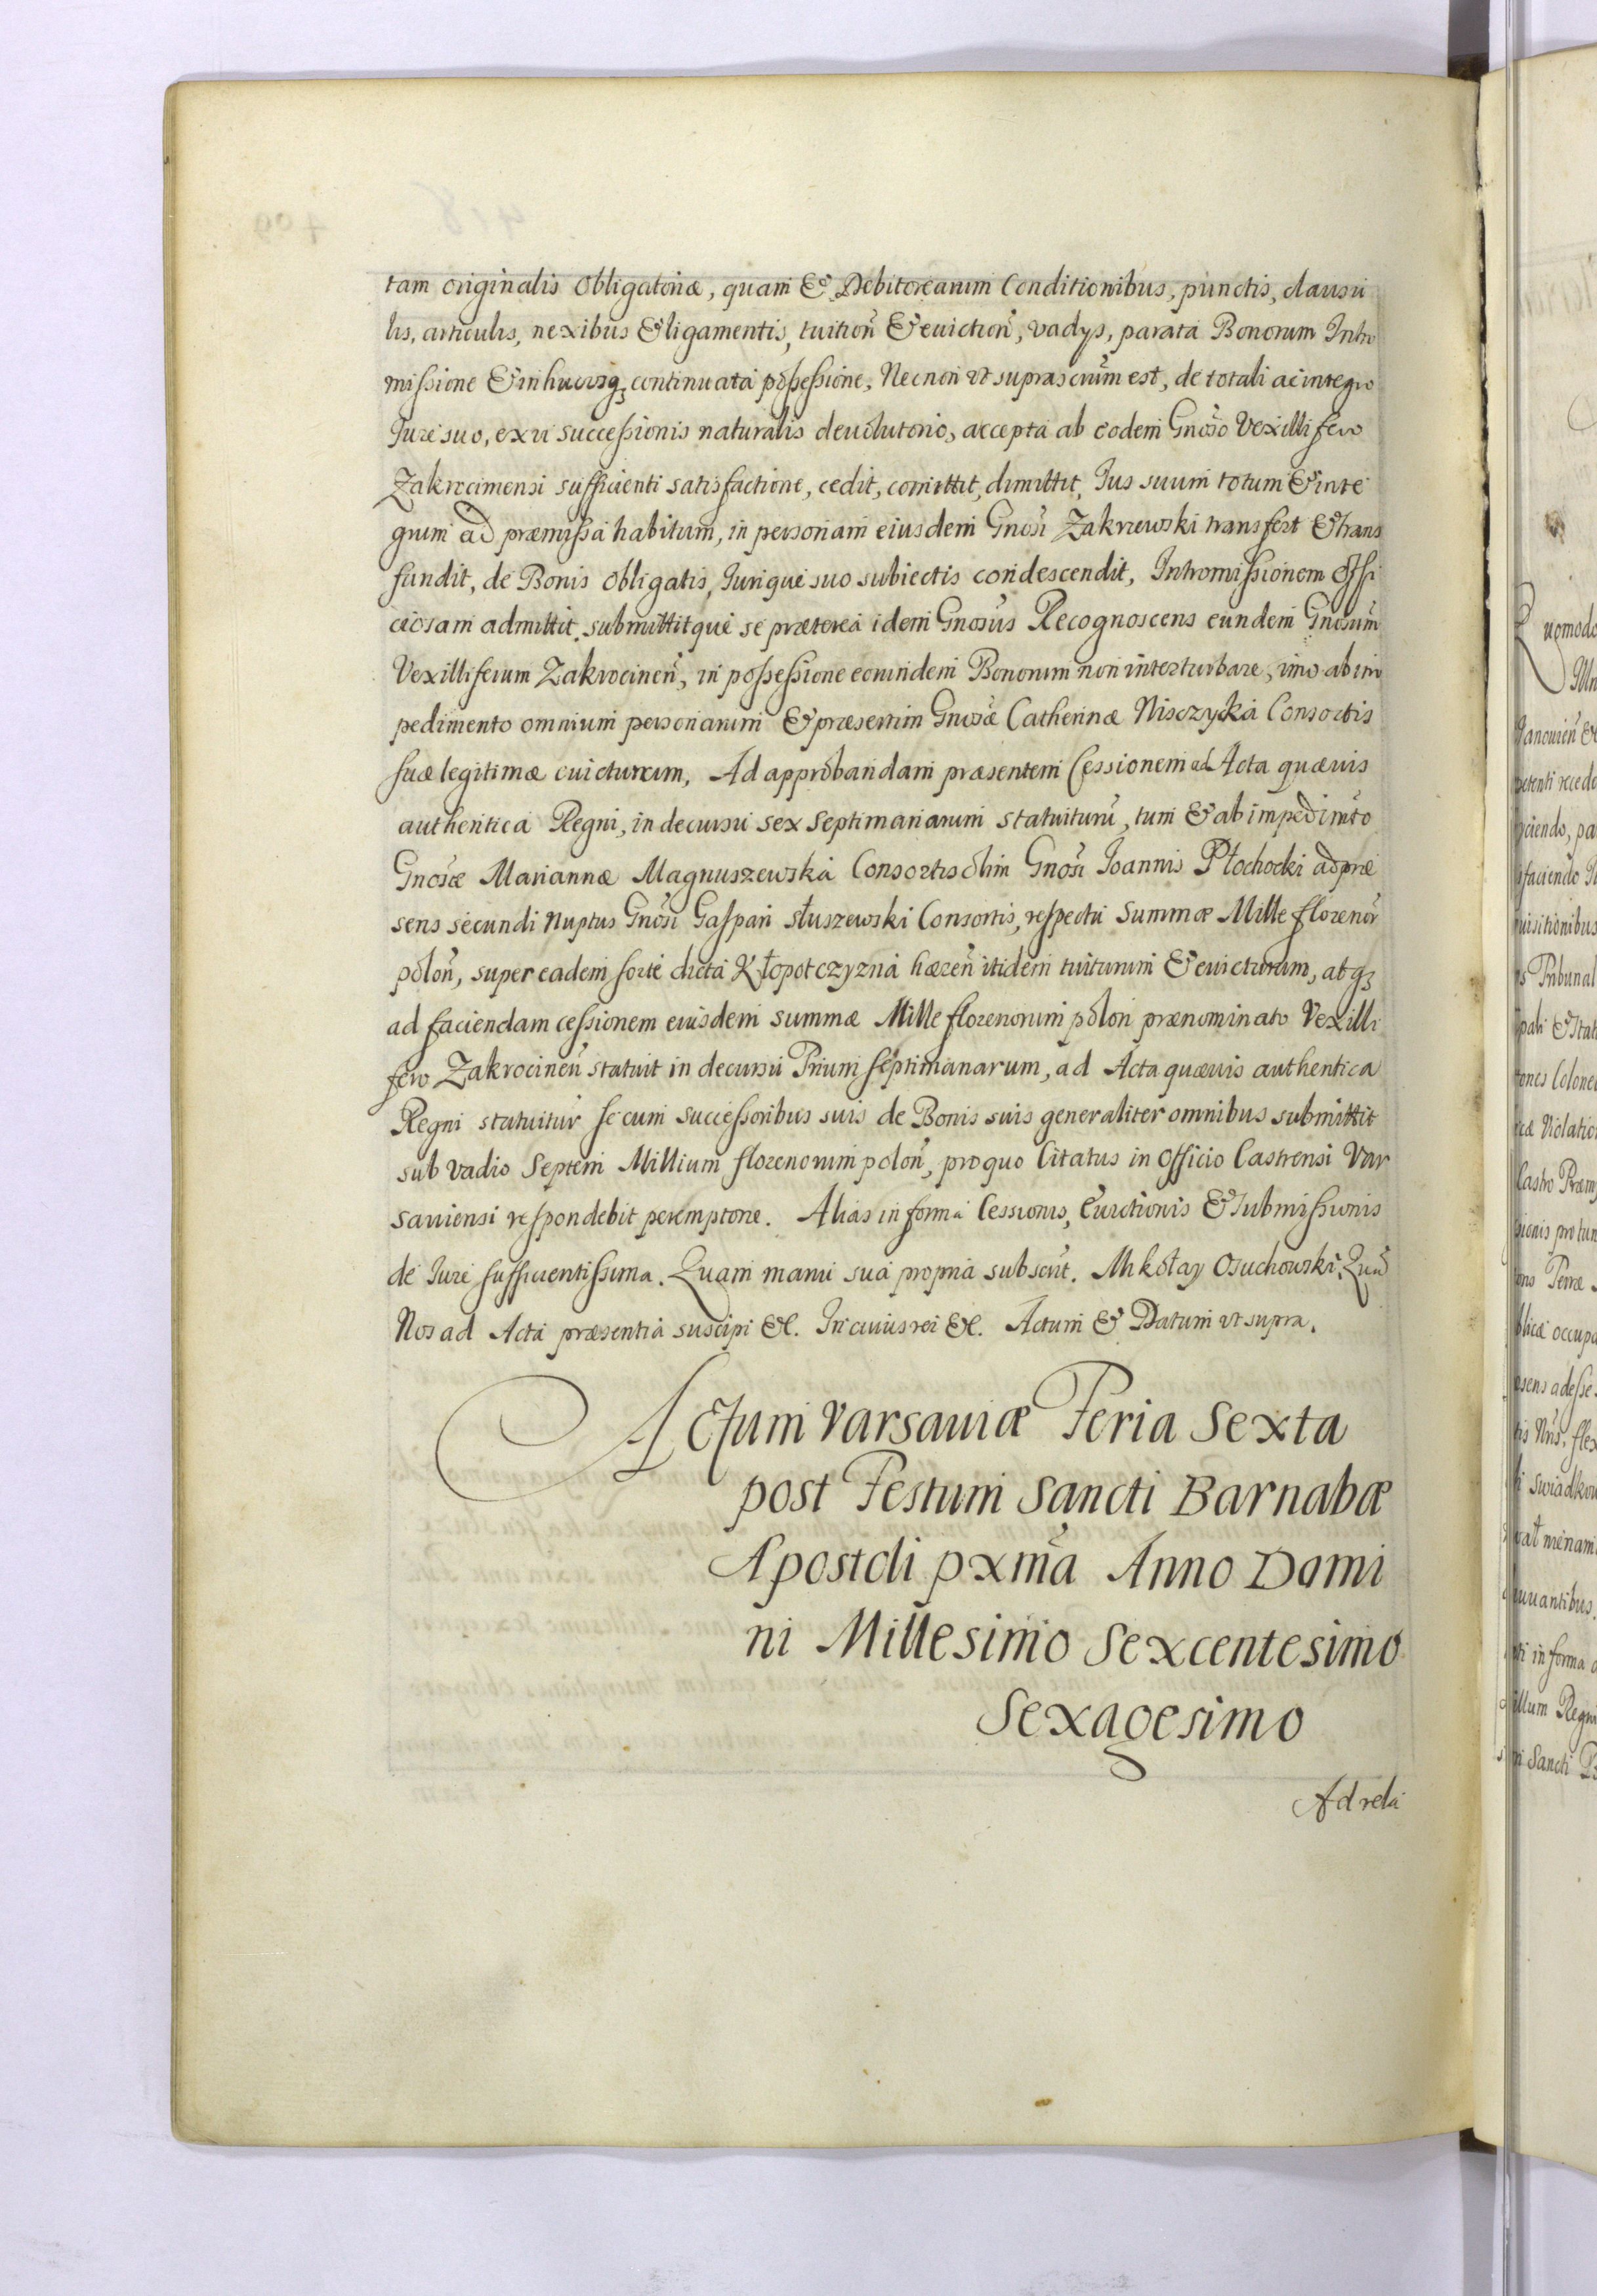 tam originalis Obligatoriæ, quam & Debitorearum Conditionibus, punctis, clausu
lis, articulis, nexibus & ligamentis, tuition̄ & euiction̄, vadys, parata Bonorum Intro
missione & in hucusq; continuata possessione, Necnon vt suprascrium est, de totali ac integro
Jure suo, ex vi successionis naturalis deuolutorio, accepta ab eodem Gnoso Vexillifero
Zakrocimensi sufficienti satisfactione, cedit, comittit, dimittit, Ius suum totum & inte
grum ad præmissa habitum, in personam eiusdem Gnosi Zakrzewski transfert & trans
fundit, de Bonis Obligatis, Iurique suo subiectis condescendit, Intromissionem offi
ciosam admittit, submittitque se præterea idem Gnosus Recognoscens eundem Gnosum
Vexilliferum Zakrocinen̄, in possessione eorundem Bonorum non interturbare, imo ab im
pedimento omnium personarum & præsertim Gnosæ Catherinæ Nisczycka Consortis
suæ legitimæ euicturum, Ad approbandam præsentem Cessionem ad Acta quævis
authentica Regni, in decursu sex Septimanarum statuiturū, tum & ab impedimēto
Gnosæ Mariannæ Magnuszewska Consortis olim Gnosi Joannis Płochocki ad præ
sens secundi Nuptus Gnosi Gaspari Słuszewski Consortis, respectu Summæ Mille florenor̄
polon̄, super eadem sorte dicta Kłopotczyzna hæren̄ itidem tuiturum & euicturum, atq;
ad faciendam cessionem eiusdem summæ Mille florenorum polon prænominato Vexilli
fero Zakrocinen̄ statuit in decursu Trium septimanarum, ad Acta quævis authentica
Regni statuitur se cum successoribus suis de Bonis suis generaliter omnibus submittit
sub vadio Septem Millium florenorum polon̄, pro quo Citatus in Officio Castrensi Var
sauiensi respondebit peremptorie. Alias in forma Cessionis, Euictionis & Submissionis
de Iure sufficientissima. Quam manu sua propria subscrit. Mikołay Osuchowski. Qua
Nos ad Acta præsentia suscipi &c. In cuius rei &c. Actum & Datum vt supra.
Actum Varsauiæ Feria Sexta
post Festum Sancti Barnabæ
Apostoli pxma Anno Domi
ni Millesimo Sexcentesimo
Sexagesimo
Ad rela